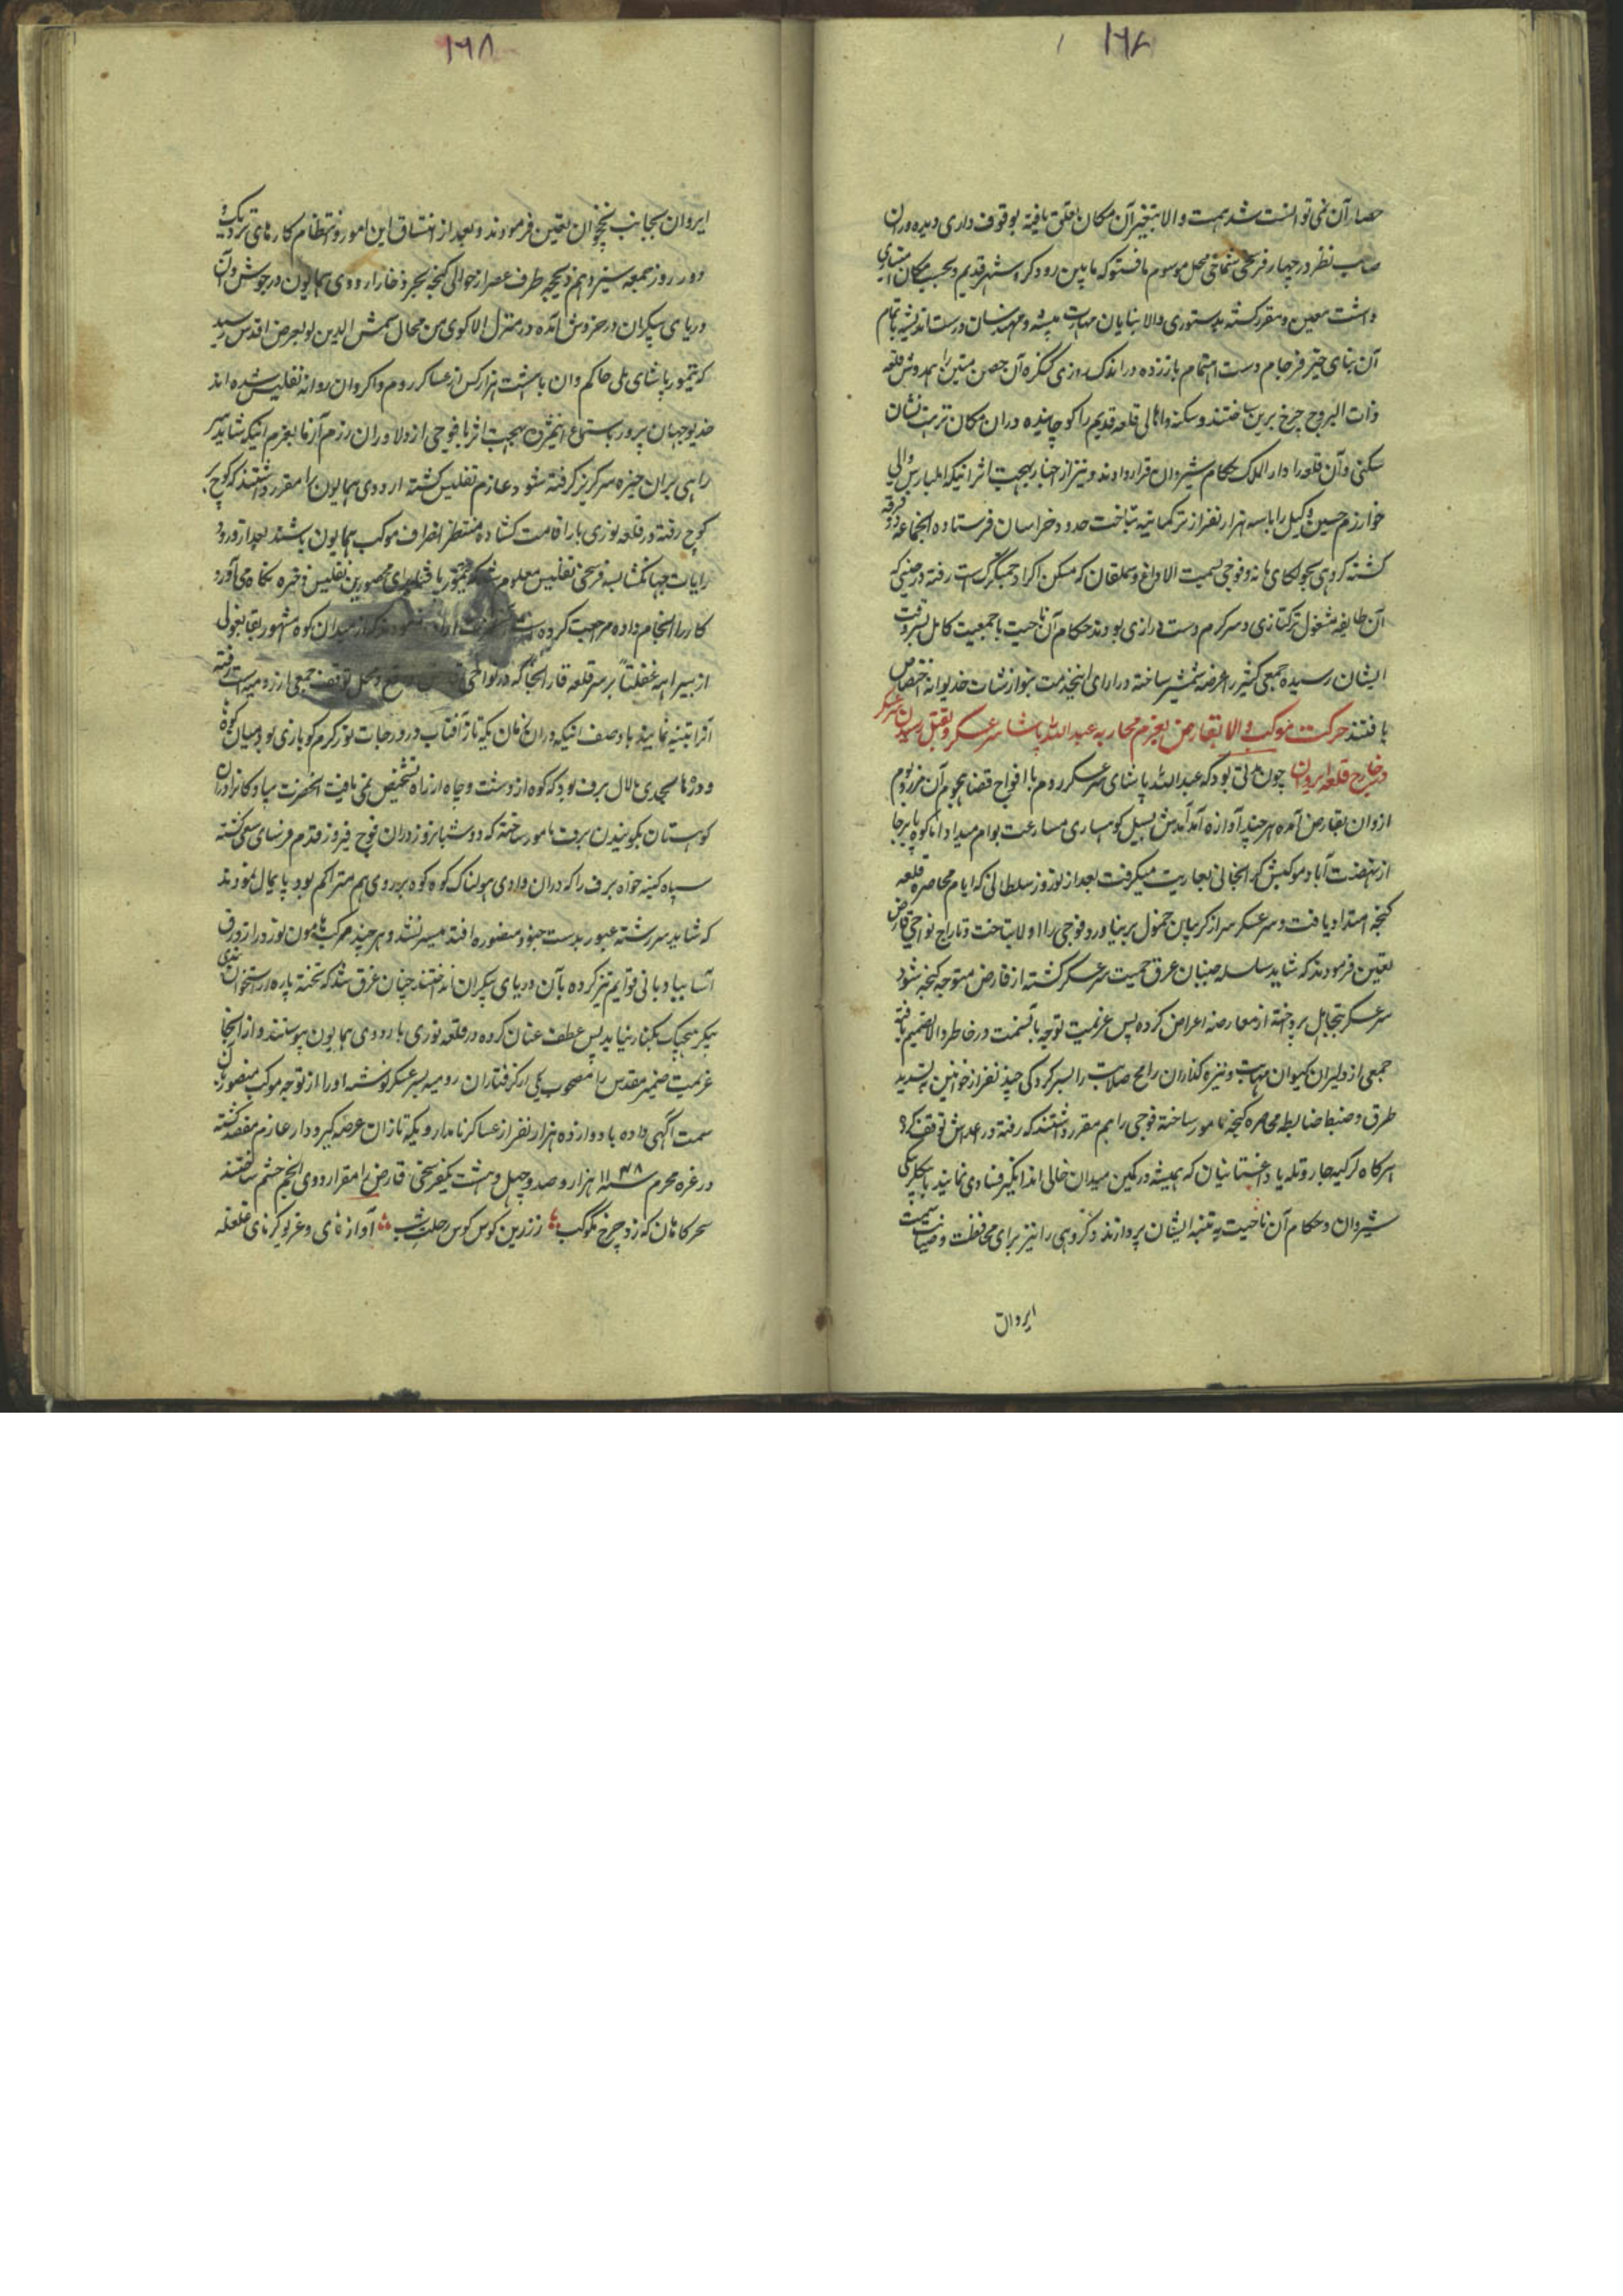 ۱۶۷
حصار آن نمی توانست شد همت والا بتغیر آن مکان تعلق یافته بوقوف داری و دیده وران
صاحب نظر در چهار فرسخی شماخی محل موسوم باقسو که مابین رود کر و شهر قدیم و بحسب مکان
داشت معین و مقرر گشته بدستوری والا بنایان مهارت پیشه و مهندسان درست اندیشه باتمام
آن بنای خیر فرجام دست اهتمام یازیده در اندک روزی کنگره آن حصن متین را همدوش قلعه
ذات البروج چرخ برین ساختند و سکنه و اهالی قلعه قدیم را کوچانیده در آن مکان تربت نشان
سکنی و آن قلعه را دار الملک حکام شیروان قرار دادند و نیز از اخبار بهجت اثر اینکه ایلبارس والی
خوارزم حسین وکیل را با سه هزار نفر از ترکمانیه بتاخت حدود خراسان فرستاده آن جماعه دو فرقه
گشته گروهی بجولگای و فوجی بسمت الاداغ و سملقان که مسکن اکراد چمشگزک است رفته در حینی که
آن طایفه مشغول ترکتازی و سرگرم دست درازی بودند حکام آن ناحیت با جمعیت کامل بسر وقت
ایشان رسیده جمعی کثیر را عرضه شمشیر ساخته در ازای اینخدمت بنوازشات خدیوانه اختصاص
یافتند حرکت موکب والا بقارص بعزم محاربه عبدالله پاشا سر عسکر و بقتل رسیدن سر عسکر
در خارج قلعه ایروان چون مدتی بود که عبدالله پاشای سر عسکر روم با افواج قضا هجوم آن مرز بوم
از وان بقارص آمده هر چند آوازه آمد آمدش بسیل کوهساری مسارعت بوام میداد اما کوه پابرجا
از نهضت آباد موکبش گرانجانی بعاریت میگرفت بعد از نوروز سلطانی که ایام محاصره قلعه
گنجه امتداد یافت و سر عسکر سر از گریبان خمول بر نیاورد فوجی را اولا بتاخت و تاراج نواحی قارص
تعیین فرمودند که شاید سلسله جنبان عرق حمیت سر عسکر گشته از قارص متوجه گنجه شود
سر عسکر بتجاهل پرداخته از معارضه اعراض کرده پس عزیمت توجه بآنسمت در خاطر والا تصمیم یافته
جمعی از دلیران کیوان مهابت و نیزه گذاران رامح صلابت را بسرکردگی چند نفر از خوانین بتسدید
طرق و ضبط ضابطه محاصره گنجه مامور ساخته فوجی را هم مقرر داشتند که رفته در توقف کرد
هر گاه لزگیه جار و تله یا داغستانیان که همیشه در کمین میدان خالی اند انگیز فسادی نمایند بیگلربیگی
شیروان و حکام آن ناحیت به تنبیه ایشان پردازند و گروهی را نیز برای محافظت و صیانت سمت
ایروان
۱۶۸
ایروان بجانب نخجوان تعیین فرمودند و بعد از اتساق این امور و انتظام کارهای نزدیک و
دور روز جمعه سیزدهم ذیحجه طرف عصر از حوالی گنجه بحر ذخار اردوی همایون در جوش و آن
دریای بیکران در خروش آمده در منزل الاکوی من محال شمس الدین لو بعرض اقدس رسید
که تیمور پاشای ملی حاکم وان با شش هزار کس از عساکر روم و اکروان روانه تفلیس شده اند
خدیو جهان پرور باستماع اینمژده بهجت اثر با فوجی از دلاوران رزم آزما بعزم اینکه شاید سر
راهی بر آن خیره سر گریز گرفته شود عازم تفلیس گشته اردوی همایون را مقرر داشتند که کوچ بر
کوچ رفته در قلعه لوری بار اقامت گشاده منتظر انصراف موکب همایون باشند بعد از ورود
رایات جهانگشا بسه فرسخی تفلیس معلوم شد که تیمور پاشا برای محصورین تفلیس ذخیره بکاه می آورد
کار را انجام داده مراجعت کرده است از میدان کوه مشهور بقایقولی
از بیراهه غفلتاً بر سر قلعه قارانجا که در نواحی و محل توقف جمعی از رومیه است رفته
آنرا تنبیه نمایند با وصف اینکه در آن زمان یکه تاز آفتاب در درجات ثور گرم گوی بازی بود میان کوه
و درها بحدی مالامال برف بود که کوه از دشت و چاه از راه تشخیص نمی یافت آنحضرت سپاه کامران را در آن
کوهستان بکوبیدن برف مامور ساخته که دو شبانروز در آن فوج فیروز قدم فرسای سعی گشته
سپاه کینه خواه برف را که در آن وادی هولناک کوه کوه بر روی هم متراکم بود پایمال نمودند
که شاید سر رشته عبور بدست جنود منصوره افتد میسر نشد و هر چند مرکب هامون نورد از زورق
آسا ببادبانی قوایم تیز کرده بآن دریای بیکران انداختند چنان غرق شد که تخته پاره از استخوان بندی
پیکر هیچیک بکنار نیامد پس عطف عنان کرده در قلعه لوری باردوی همایون پیوستند و از آنجا
عزیمت ضمیر مقدس را مصحوب یکی از گرفتاران رومیه بسر عسکر نوشته او را از توجه موکب منصور بآن
سمت آگهی داده با دوازده هزار نفر از عساکر نامدار و یکه تازان عرصه گیر و دار عازم مقصد گشته
در غره محرم سنه ۱۱۴۸ هزار و صد و چهل و هشت یکفرسخی قارص را مقر اردوی انجم حشم ساختند
سحر گاهان که زد چرخ مکوکب ززرین کوس کوس رحلت شب آواز نای و غریو کرنای غلغله